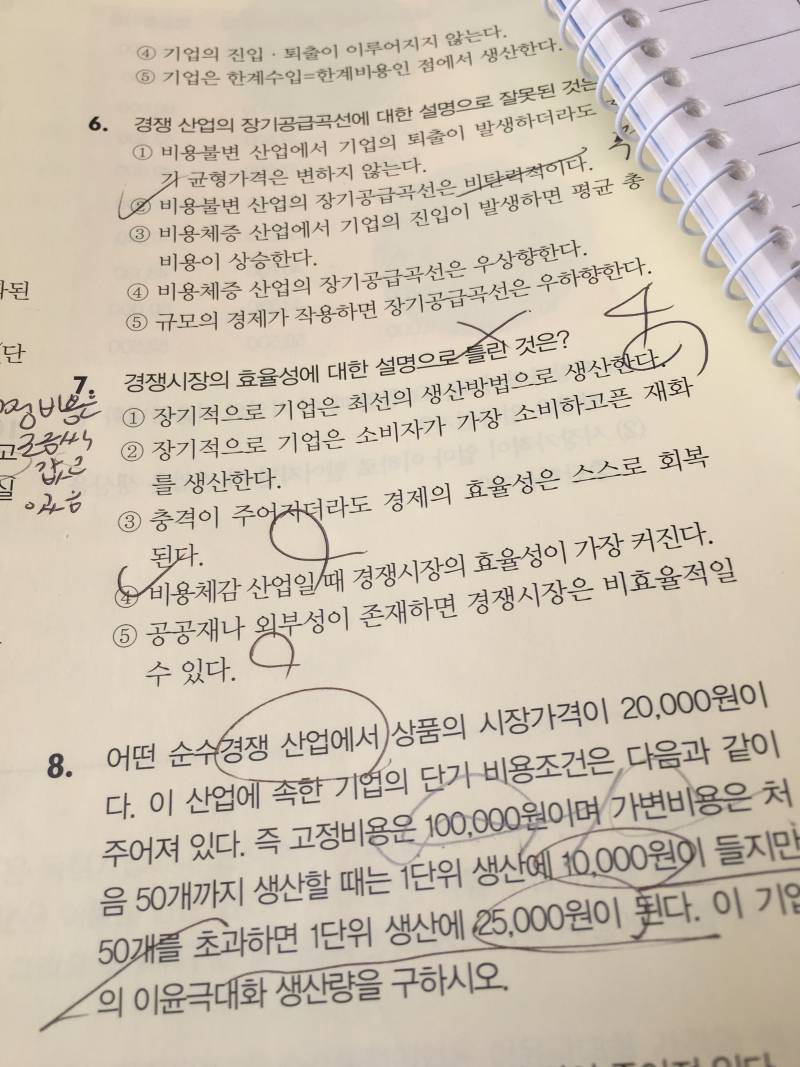 ④ 기업의 진입 · 퇴출이 이루어지지 않는다.
⑤ 기업은 한계수입=한계비용인 점에서 생산한다.
6. 경쟁 산업의 장기공급곡선에 대한 설명으로 잘못된 것은
① 비용불변 산업에서 기업의 퇴출이 발생하더라도
가 균형가격은 변하지 않는다.
② 비용불변 산업의 장기공급곡선은 비탄력적이다.
③ 비용체증 산업에서 기업의 진입이 발생하면 평균 총
비용이 상승한다.
④ 비용체증 산업의 장기공급곡선은 우상향한다.
⑤ 규모의 경제가 작용하면 장기공급곡선은 우하향한다.
7. 경쟁시장의 효율성에 대한 설명으로 틀린 것은?
① 장기적으로 기업은 최선의 생산방법으로 생산한다.
② 장기적으로 기업은 소비자가 가장 소비하고픈 재화
를 생산한다.
③ 충격이 주어지더라도 경제의 효율성은 스스로 회복
된다.
④ 비용체감 산업일 때 경쟁시장의 효율성이 가장 커진다.
⑤ 공공재나 외부성이 존재하면 경쟁시장은 비효율적일
수 있다.
8. 어떤 순수경쟁 산업에서 상품의 시장가격이 20,000원이
다. 이 산업에 속한 기업의 단기 비용조건은 다음과 같이
주어져 있다. 즉 고정비용은 100,000원이며 가변비용은 처
음 50개까지 생산할 때는 1단위 생산에 10,000원이 들지만
50개를 초과하면 1단위 생산에 25,000원이 된다. 이 기업
의 이윤극대화 생산량을 구하시오.